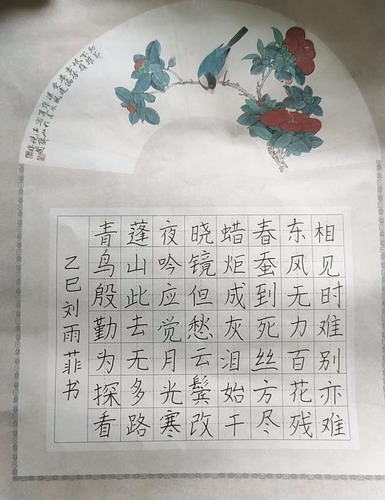 相见时难别亦难
东风无力百花残
春蚕到死丝方尽
蜡炬成灰泪始干
晓镜但愁云鬓改
夜吟应觉月光寒
蓬山此去无多路
青鸟殷勤为探看
乙巳刘雨菲书